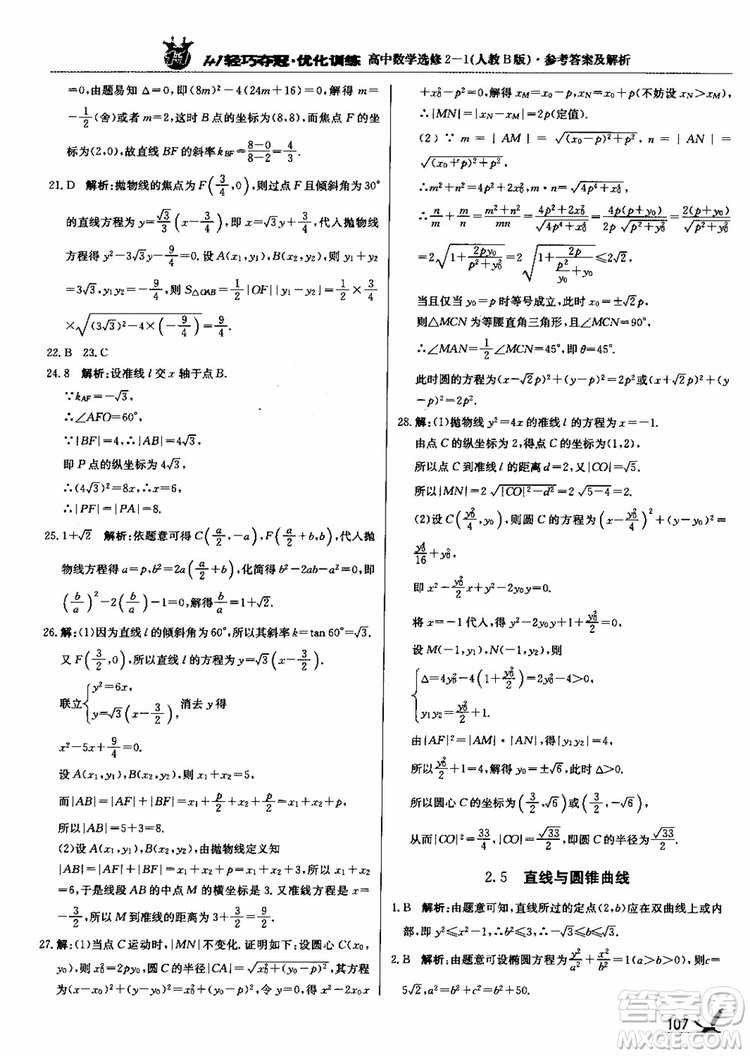 1+1轻巧夺冠·优化训练 高中数学选修2-1(人教B版)·参考答案及解析
=0,由题易知Δ=0,即(8m)²-4(8m+32)=0,解得m=
-1/2(舍)或m=2,这时B点的坐标为(8,8),而焦点F的坐
标为(2,0),故直线BF的斜率k_BF=(8-0)/(8-2)=4/3.
21. D 解析:抛物线的焦点为F(3/4,0),则过点F且倾斜角为30°
的直线方程为y=√3/3(x-3/4),即x=√3y+3/4,代入抛物线
方程得y²-3√3y-9/4=0.设A(x₁,y₁),B(x₂,y₂),则y₁+y₂
=3√3,y₁y₂=-9/4,则S△OAB=1/2|OF||y₁-y₂|=1/2×3/4
×√((3√3)²-4×(-9/4))=9/4.
22. B 23. C
24. 8 解析:设准线l交x轴于点B.
∵k_AF=-√3,
∴∠AFO=60°.
∵|BF|=4,∴|AB|=4√3,
即P点的纵坐标为4√3,
∴(4√3)²=8x,∴x=6,
∴|PF|=|PA|=8.
25. 1+√2 解析:依题意可得C(a/2,-a),F(a/2+b,b),代入抛
物线方程得a=p,b²=2a(a/2+b),化简得b²-2ab-a²=0,即
(b/a)²-2(b/a)-1=0,解得b/a=1+√2.
26. 解:(1)因为直线l的倾斜角为60°,所以其斜率k=tan 60°=√3.
又F(3/2,0),所以直线l的方程为y=√3(x-3/2).
联立{y²=6x, y=√3(x-3/2), 消去y得
x²-5x+9/4=0.
设A(x₁,y₁),B(x₂,y₂),则x₁+x₂=5,
而|AB|=|AF|+|BF|=x₁+p/2+x₂+p/2=x₁+x₂+p,
所以|AB|=5+3=8.
(2)设A(x₁,y₁),B(x₂,y₂),由抛物线定义知
|AB|=|AF|+|BF|=x₁+p/2+x₂+p/2=x₁+x₂+p=x₁+x₂+3=9,所以x₁+x₂=
6,于是线段AB的中点M的横坐标是3.又准线方程是x=
-3/2,所以M到准线的距离等于3+3/2=9/2.
27. 解:(1)当点C运动时,|MN|不变化.证明如下:设圆心C(x₀,
y₀),则x₀²=2py₀,圆C的半径|AC|=√(x₀²+(y₀-p)²),其方程
=0,解得x_M=x₀-p,x_N=x₀+p(不妨设x_M<x_N),
∴|MN|=|x_N-x_M|=2p(定值).
∴m²+n²=4p²+2x₀²,m·n=√(4p⁴+x₀⁴),
当且仅当y₀=p时等号成立,此时x₀=±√2p,
则△MCN为等腰直角三角形,且∠MCN=90°,
∴∠MAN=1/2∠MCN=45°,即θ=45°,
此时圆的方程为(x-√2p)²+(y-p)²=2p²或(x+√2p)²+
(y-p)²=2p².
28. 解:(1)抛物线y²=4x的准线l的方程为x=-1.
由点C的纵坐标为2,得点C的坐标为(1,2),
所以点C到准线l的距离d=2,又|CO|=√5.
所以|MN|=2√(|CO|²-d²)=2√(5-4)=2.
(2)设C(y₀²/4,y₀),则圆C的方程为(x-y₀²/4)²+(y-y₀)²=
y₀⁴/16+y₀²,
即x²-y₀²/2 x+y²-2y₀y=0.
将x=-1代入得y²-2y₀y+1+y₀²/2=0.
设M(-1,y₁),N(-1,y₂),则
{Δ=4y₀²-4(1+y₀²/2)=2y₀²-4>0,
y₁y₂=y₀²/2+1.
由|AF|²=|AM|·|AN|,得|y₁y₂|=4,
所以y₀²/2+1=4,解得y₀=±√6,此时Δ>0.
所以圆心C的坐标为(3/2,√6)或(3/2,-√6),
从而|CO|²=33/4,|CO|=√33/2,即圆C的半径为√33/2.
2.5 直线与圆锥曲线
2. B 解析:由题意可设椭圆方程为
107